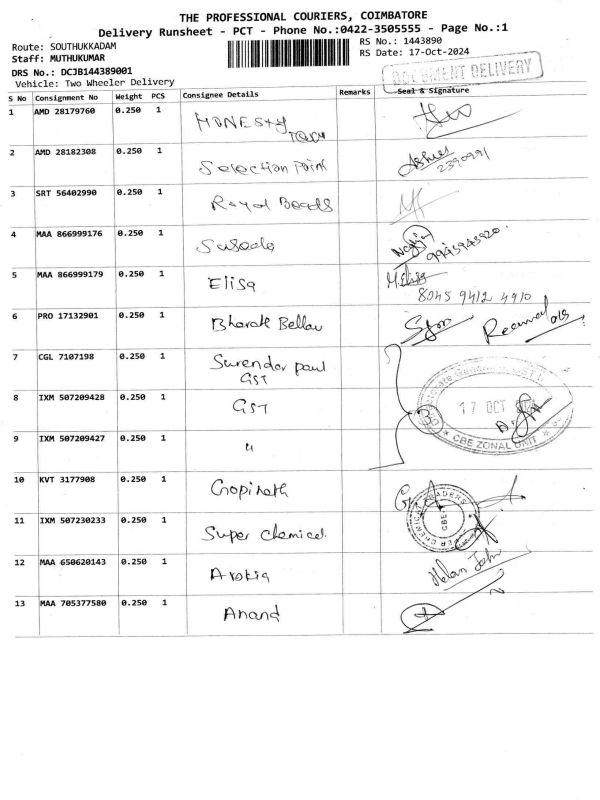 THE PROFESSIONAL COURIERS, COIMBATORE
Delivery Runsheet - PCT - Phone No.:0422-3505555 - Page No.:1
Route: SOUTHUKKADAM
RS No.: 1443890
Staff: MUTHUKUMAR
RS Date: 17-Oct-2024
DRS No.: DCJB144389001
DOCUMENT DELIVERY
Vehicle: Two Wheeler Delivery
S No Consignment No Weight PCS Consignee Details Remarks Seal & Signature
1 AMD 28179760 0.250 1 HONESTY
2 AMD 28182308 0.250 1 Selection Point 2390991
3 SRT 56402990 0.250 1 Royal Beads
4 MAA 866999176 0.250 1 9943943920
5 MAA 866999179 0.250 1 Elisa M.Elisa
8045 9412 4910
6 PRO 17132901 0.250 1 Bharath
7 CGL 7107198 0.250 1 Surendar paul
GST
8 IXM 507209428 0.250 1 GST 17 OCT
9 IXM 507209427 0.250 1 "
3
CBE ZONAL UNIT
10 KVT 3177908 0.250 1 Gopinath
11 IXM 507230233 0.250 1 Super Chemical CBE
12 MAA 650620143 0.250 1 Helan John
13 MAA 705377580 0.250 1 Anand